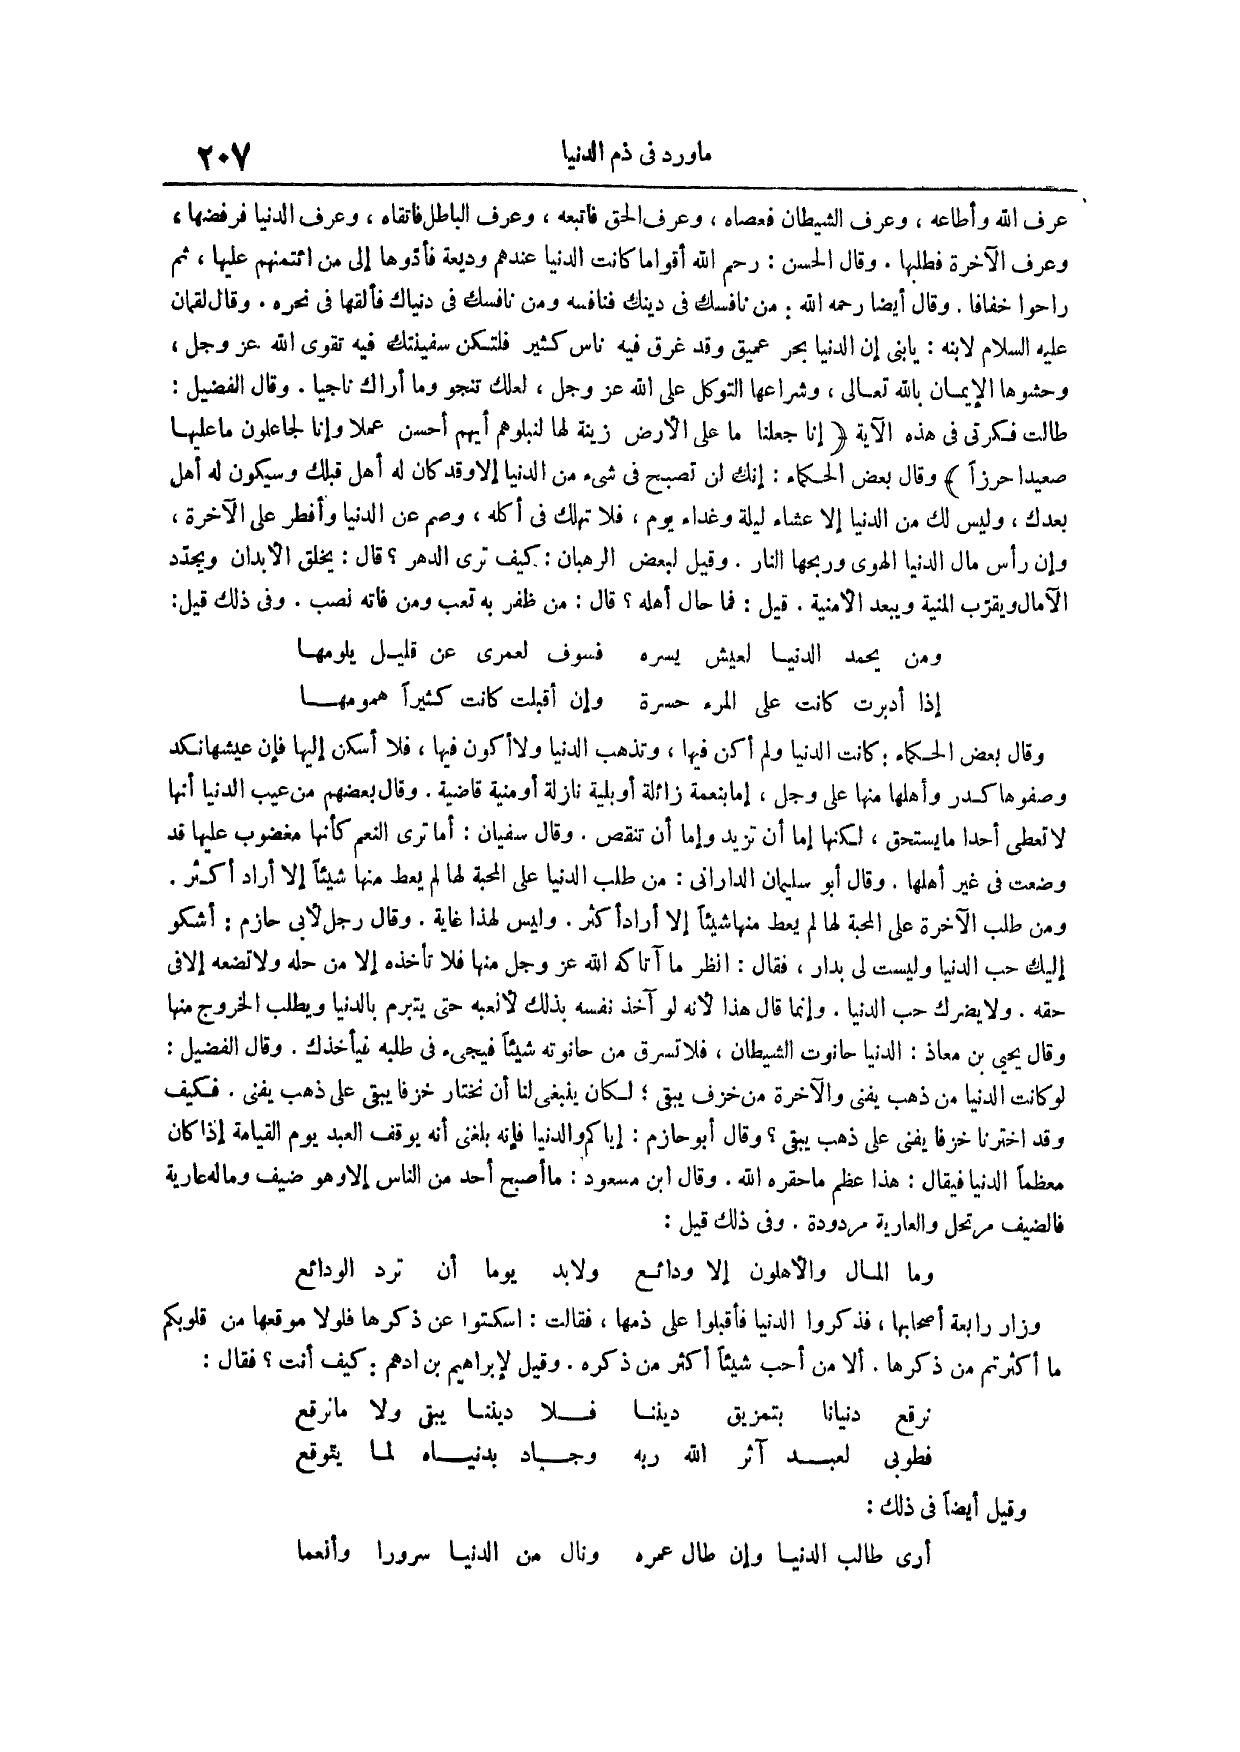 ماورد فى ذم الدنيا ٢٠٧
عرف الله وأطاعه ، وعرف الشيطان فعصاه ، وعرف الحق فاتبعه ، وعرف الباطل فاتقاه ، وعرف الدنيا فرفضها ،
وعرف الآخرة فطلبها . وقال الحسن : رحم الله أقواما كانت الدنيا عندهم وديعة فأدّوها إلى من ائتمنهم عليها ، ثم
راحوا خفافا . وقال أيضا رحمه الله : من نافسك فى دينك فنافسه ومن نافسك فى دنياك فألقها فى نحره . وقال لقمان
عليه السلام لابنه : يابنى إن الدنيا بحر عميق وقد غرق فيه ناس كثير فلتكن سفينتك فيه تقوى الله عز وجل ،
وحشوها الإيمان بالله تعالى ، وشراعها التوكل على الله عز وجل ، لعلك تنجو وما أراك ناجيا . وقال الفضيل :
طالت فكرتى فى هذه الآية ﴿ إنا جعلنا ما على الأرض زينة لها لنبلوهم أيهم أحسن عملا وإنا لجاعلون ماعليها
صعيدا جرزاً ﴾ وقال بعض الحكماء : إنك لن تصبح فى شىء من الدنيا إلا وقد كان له أهل قبلك وسيكون له أهل
بعدك ، وليس لك من الدنيا إلا عشاء ليلة وغداء يوم ، فلا تهلك فى أكله ، وصم عن الدنيا وأفطر على الآخرة ،
وإن رأس مال الدنيا الهوى وربحها النار . وقيل لبعض الرهبان : كيف ترى الدهر ؟ قال : يخلق الأبدان ويجدّد
الآمال ويقرّب المنية ويبعد الأمنية . قيل : فما حال أهله ؟ قال : من ظفر به تعب ومن فاته نصب . وفى ذلك قيل:
ومن يحمد الدنيا لعيش يسره فسوف لعمرى عن قليل يلومها
إذا أدبرت كانت على المرء حسرة وإن أقبلت كانت كثيراً همومها
وقال بعض الحكماء : كانت الدنيا ولم أكن فيها ، وتذهب الدنيا ولا أكون فيها ، فلا أسكن إليها فإن عيشها نكد
وصفوها كدر وأهلها منها على وجل ، إما بنعمة زائلة أو بلية نازلة أو منية قاضية . وقال بعضهم من عيب الدنيا أنها
لا تعطى أحدا مايستحق ، لكنها إما أن تزيد وإما أن تنقص . وقال سفيان : أما ترى النعم كأنها مغضوب عليها قد
وضعت فى غير أهلها . وقال أبو سليمان الدارانى : من طلب الدنيا على المحبة لها لم يعط منها شيئاً إلا أراد أكثر .
ومن طلب الآخرة على المحبة لها لم يعط منها شيئاً إلا أراد أكثر . وليس لهذا غاية . وقال رجل لأبى حازم : أشكو
إليك حب الدنيا وليست لى بدار ، فقال : انظر ما آتاكه الله عز وجل منها فلا تأخذه إلا من حله ولا تضعه إلا فى
حقه . ولا يضرك حب الدنيا . وإنما قال هذا لأنه لو آخذ نفسه بذلك لأتعبه حتى يتبرم بالدنيا ويطلب الخروج منها
وقال يحيى بن معاذ : الدنيا حانوت الشيطان ، فلا تسرق من حانوته شيئاً فيجىء فى طلبه فيأخذك . وقال الفضيل :
لو كانت الدنيا من ذهب يفنى والآخرة من خزف يبقى ؛ لكان ينبغى لنا أن نختار خزفا يبقى على ذهب يفنى . فكيف
وقد اخترنا خزفا يفنى على ذهب يبقى ؟ وقال أبو حازم : إياكم والدنيا فإنه بلغنى أنه يوقف العبد يوم القيامة إذا كان
معظماً الدنيا فيقال : هذا عظم ماحقره الله . وقال ابن مسعود : ماأصبح أحد من الناس إلا وهو ضيف وماله عارية
فالضيف مرتحل والعارية مردودة . وفى ذلك قيل :
وما المال والأهلون إلا ودائع ولابد يوما أن ترد الودائع
وزار رابعة أصحابها ، فذكروا الدنيا فأقبلوا على ذمها ، فقالت : اسكتوا عن ذكرها فلولا موقعها من قلوبكم
ما أكثرتم من ذكرها . ألا من أحب شيئاً أكثر من ذكره . وقيل لإبراهيم بن ادهم : كيف أنت ؟ فقال :
نرقع دنيانا بتمزيق ديننا فلا ديننا يبقى ولا مانرقع
فطوبى لعبد آثر الله ربه وجاد بدنياه لما يتوقع
وقيل أيضاً فى ذلك :
أرى طالب الدنيا وإن طال عمره ونال من الدنيا سرورا وأنعما